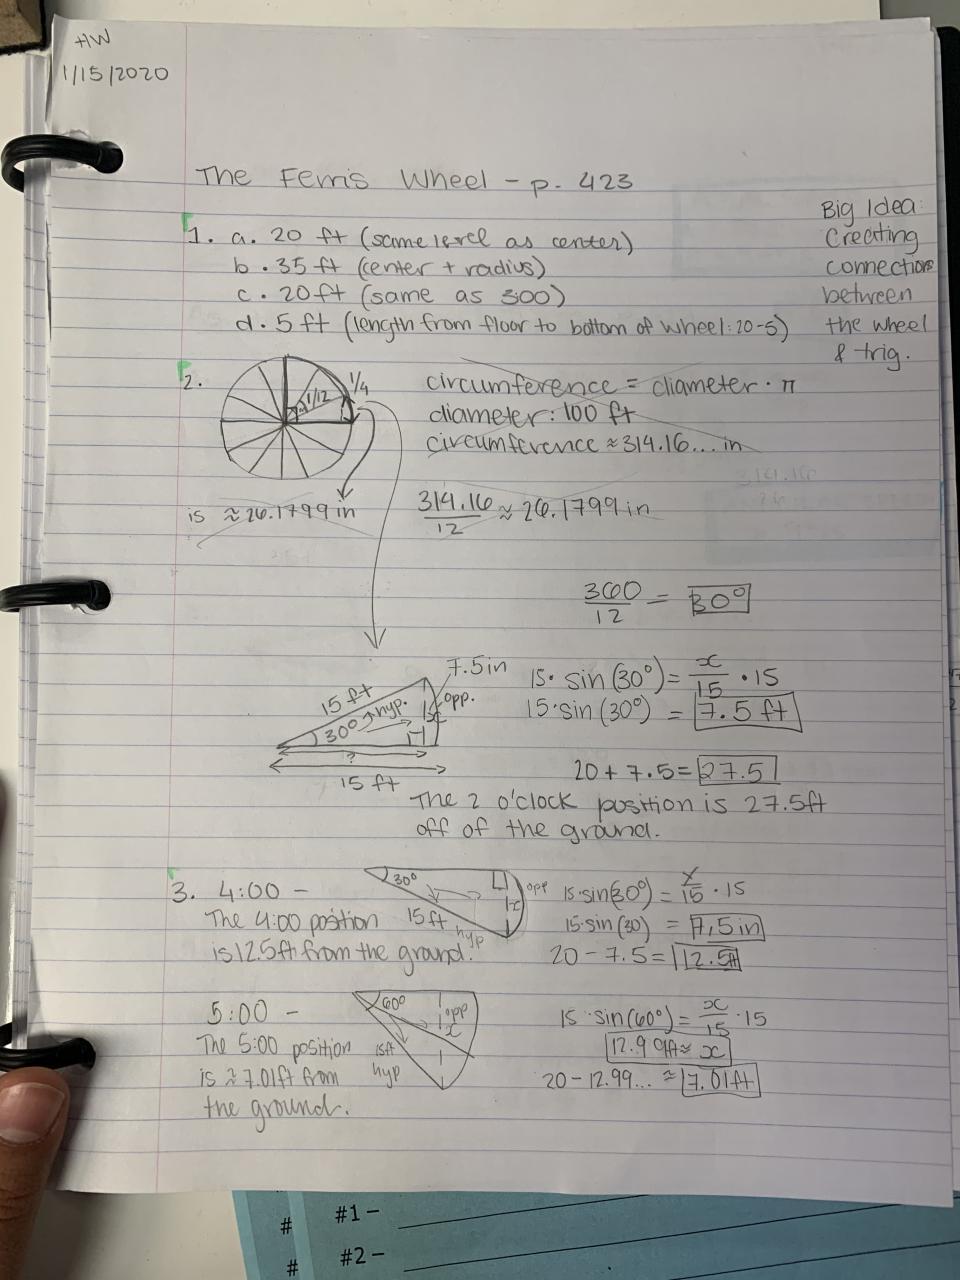 HW
1/15/2020
The Ferris Wheel - p. 423
Big Idea:
Creating
connections
between
the wheel
& trig.
1. a. 20 ft (same level as center)
b. 35 ft (center + radius)
c. 20ft (same as 300)
d. 5 ft (length from floor to bottom of wheel: 20-5)
2.
1/4
1/12
circumference = diameter · π
diameter: 100 ft
circumference ≈ 314.16... in
is ≈ 26.1799 in
314.16/12 ≈ 26.1799 in
360/12 = 30°
7.5in
15 ft
hyp.
opp.
x
30°
?
15 ft
15· sin(30°) = x/15 · 15
15·sin(30°) = 7.5 ft
20 + 7.5 = 27.5
The 2 o'clock position is 27.5ft
off of the ground.
3. 4:00 -
The 4:00 position
is 12.5ft from the ground.
30°
opp
x
15 ft
hyp
15·sin(30°) = x/15 · 15
15·sin(30) = 7.5 in
20 - 7.5 = 12.5ft
5:00 -
The 5:00 position
is ≈ 7.01ft from
the ground.
60°
opp
x
15ft
hyp
15 · sin(60°) = x/15 · 15
12.99ft ≈ x
20 - 12.99... ≈ 7.01ft
# #1 –
# #2 –